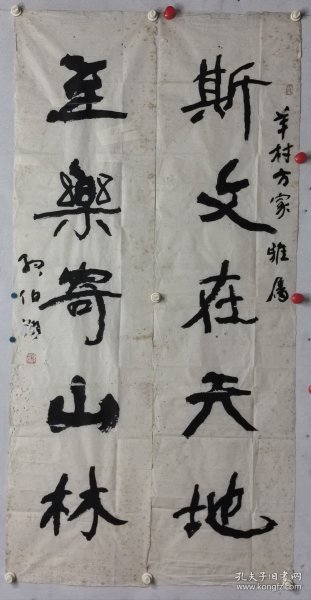 斯文在天地
至樂寄山林
村方家雅属
孔伯
孔夫子旧书网
www.kongfz.com